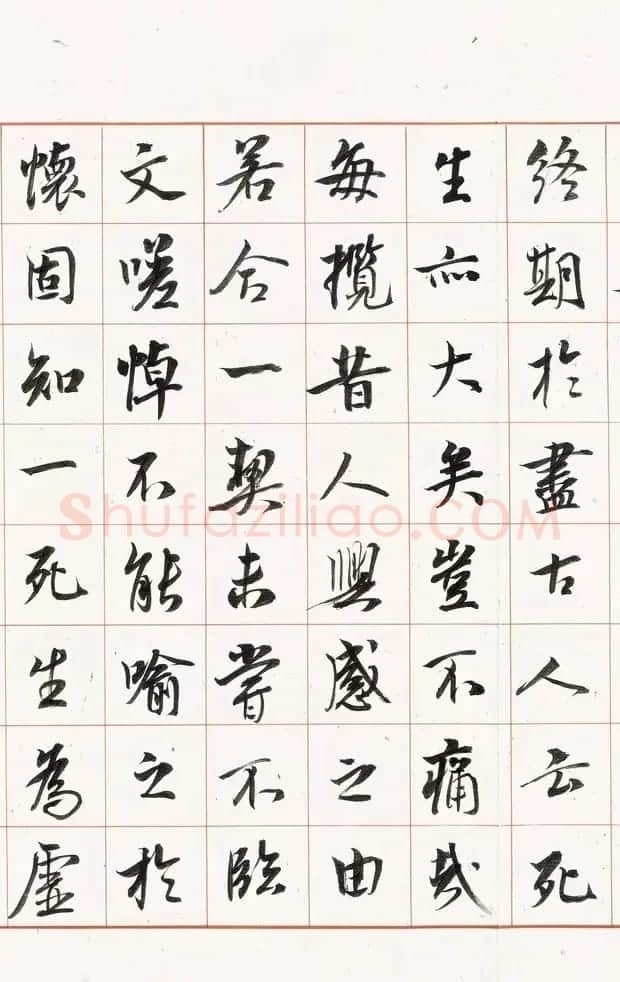 終期於盡古人云死
生亦大矣豈不痛哉
每攬昔人興感之由
若合一契未嘗不臨
文嗟悼不能喻之於
懷固知一死生為虛
Shufaziliao.COM